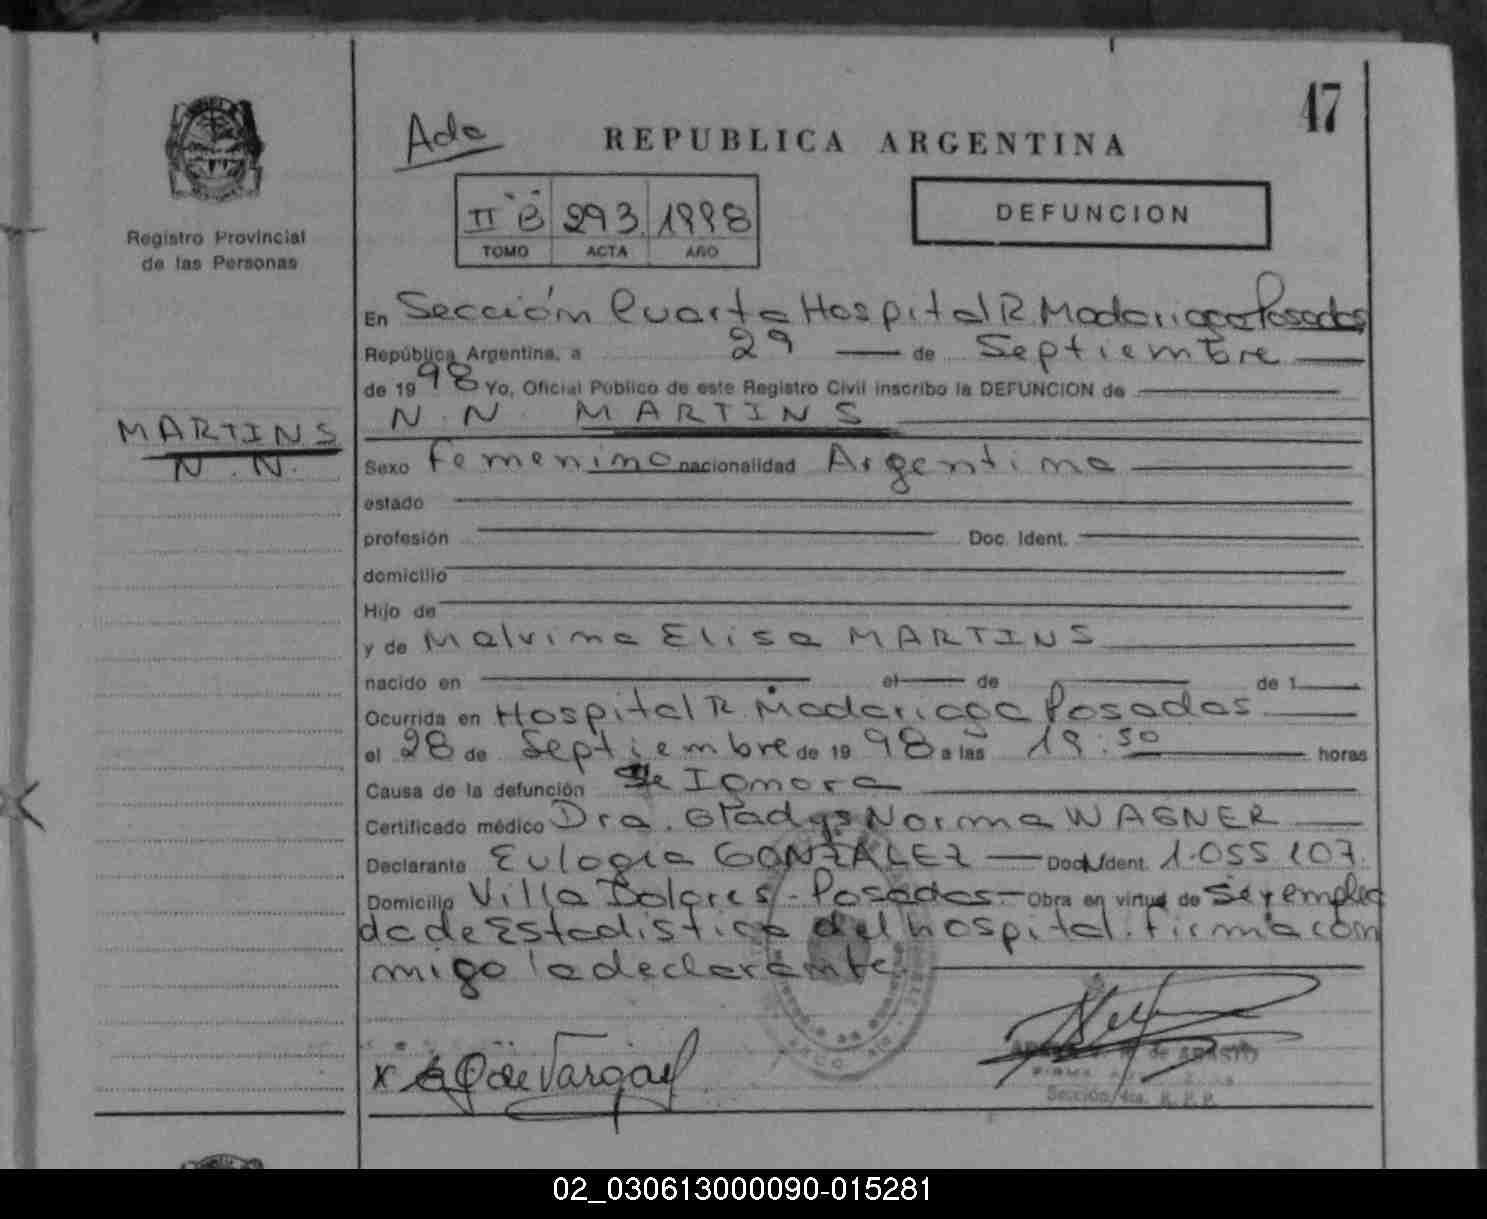 47
Ada
REPUBLICA ARGENTINA
Registro Provincial
de las Personas
II "B" 293 1998
TOMO ACTA AÑO
DEFUNCION
En Sección Cuarta Hospital R. Madariaga Posadas
República Argentina, a 29 de Septiembre
de 1998 Yo, Oficial Público de este Registro Civil inscribo la DEFUNCION de
N.N MARTINS
MARTINS
N.N.
Sexo femenino nacionalidad Argentina
estado
profesión Doc. Ident.
domicilio
Hijo de
y de Malvina Elisa MARTINS
nacido en el de de 1
Ocurrida en Hospital R. Madariaga Posadas
el 28 de Septiembre de 1998 a las 19:30 horas
Causa de la defunción Se Ignora
Certificado médico Dra. Gladys Norma WAGNER
Declarante Eulogia GONZALEZ Doc. Ident. 1.055.107
Domicilio Villa Dolores - Posadas - Obra en virtud de Ser emplea
da de Estadistica del hospital. firma con
migo la declarante
x G de Vargas
Sección 4ta. R. P. P.
02_030613000090-015281